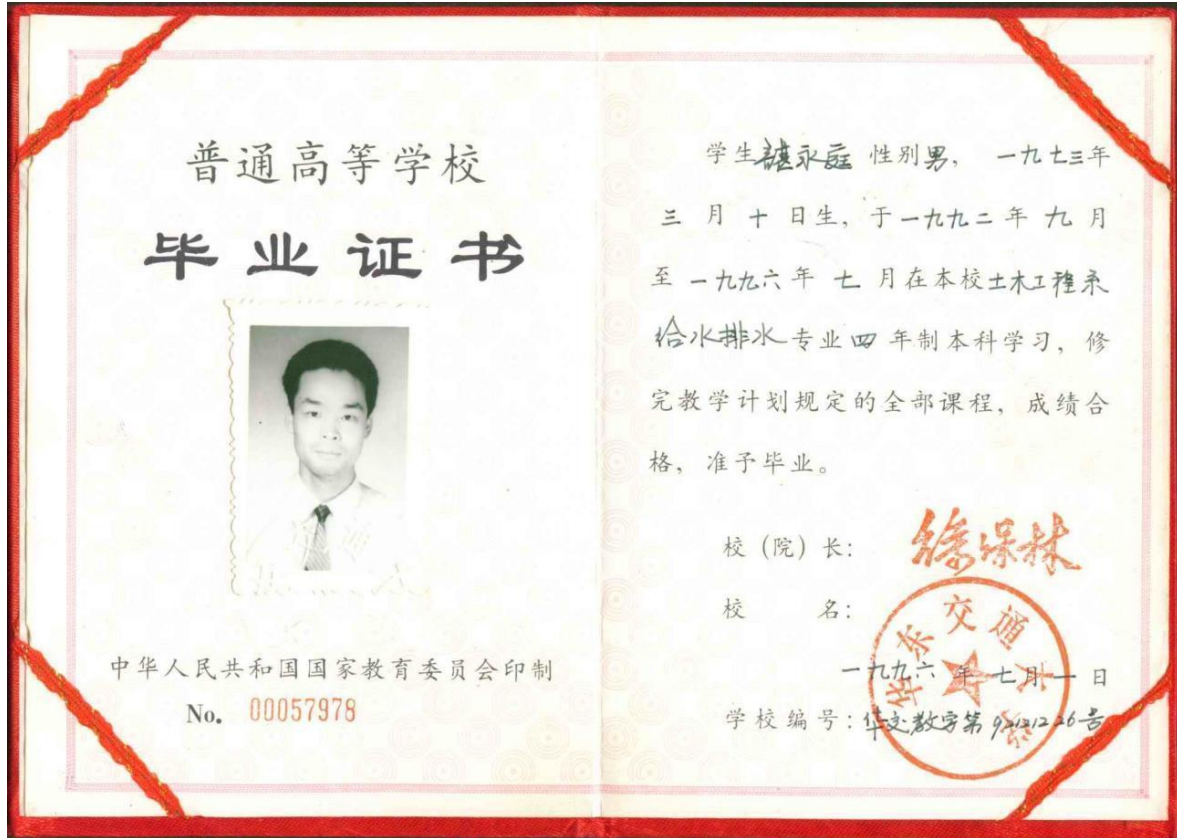 普通高等学校
毕业证书
中华人民共和国国家教育委员会印制
No. 00057978
学生谌永庭 性别男， 一九七三年
三 月 十 日生，于一九九二年 九 月
至 一九九六年 七 月在本校土木工程系
给水排水专业四 年制本科学习，修
完教学计划规定的全部课程，成绩合
格，准予毕业。
校（院）长：
校 名：
华东交通大学
一九九六年七月一日
学校编号：华交教字第 号